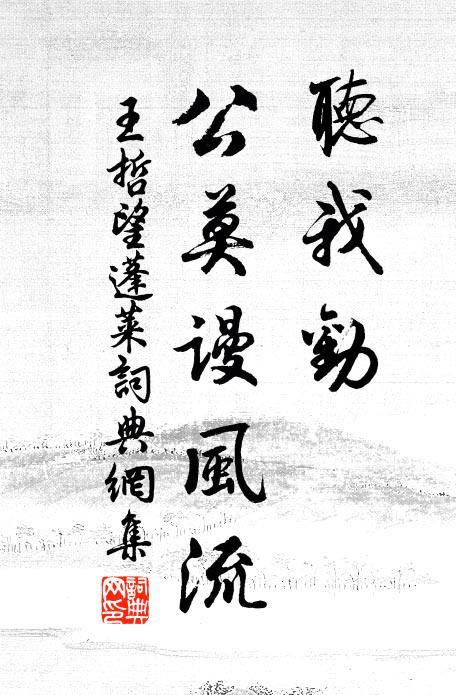 聽我勸
公莫謾風流
王哲望蓬萊詞典網集
詞典
網印